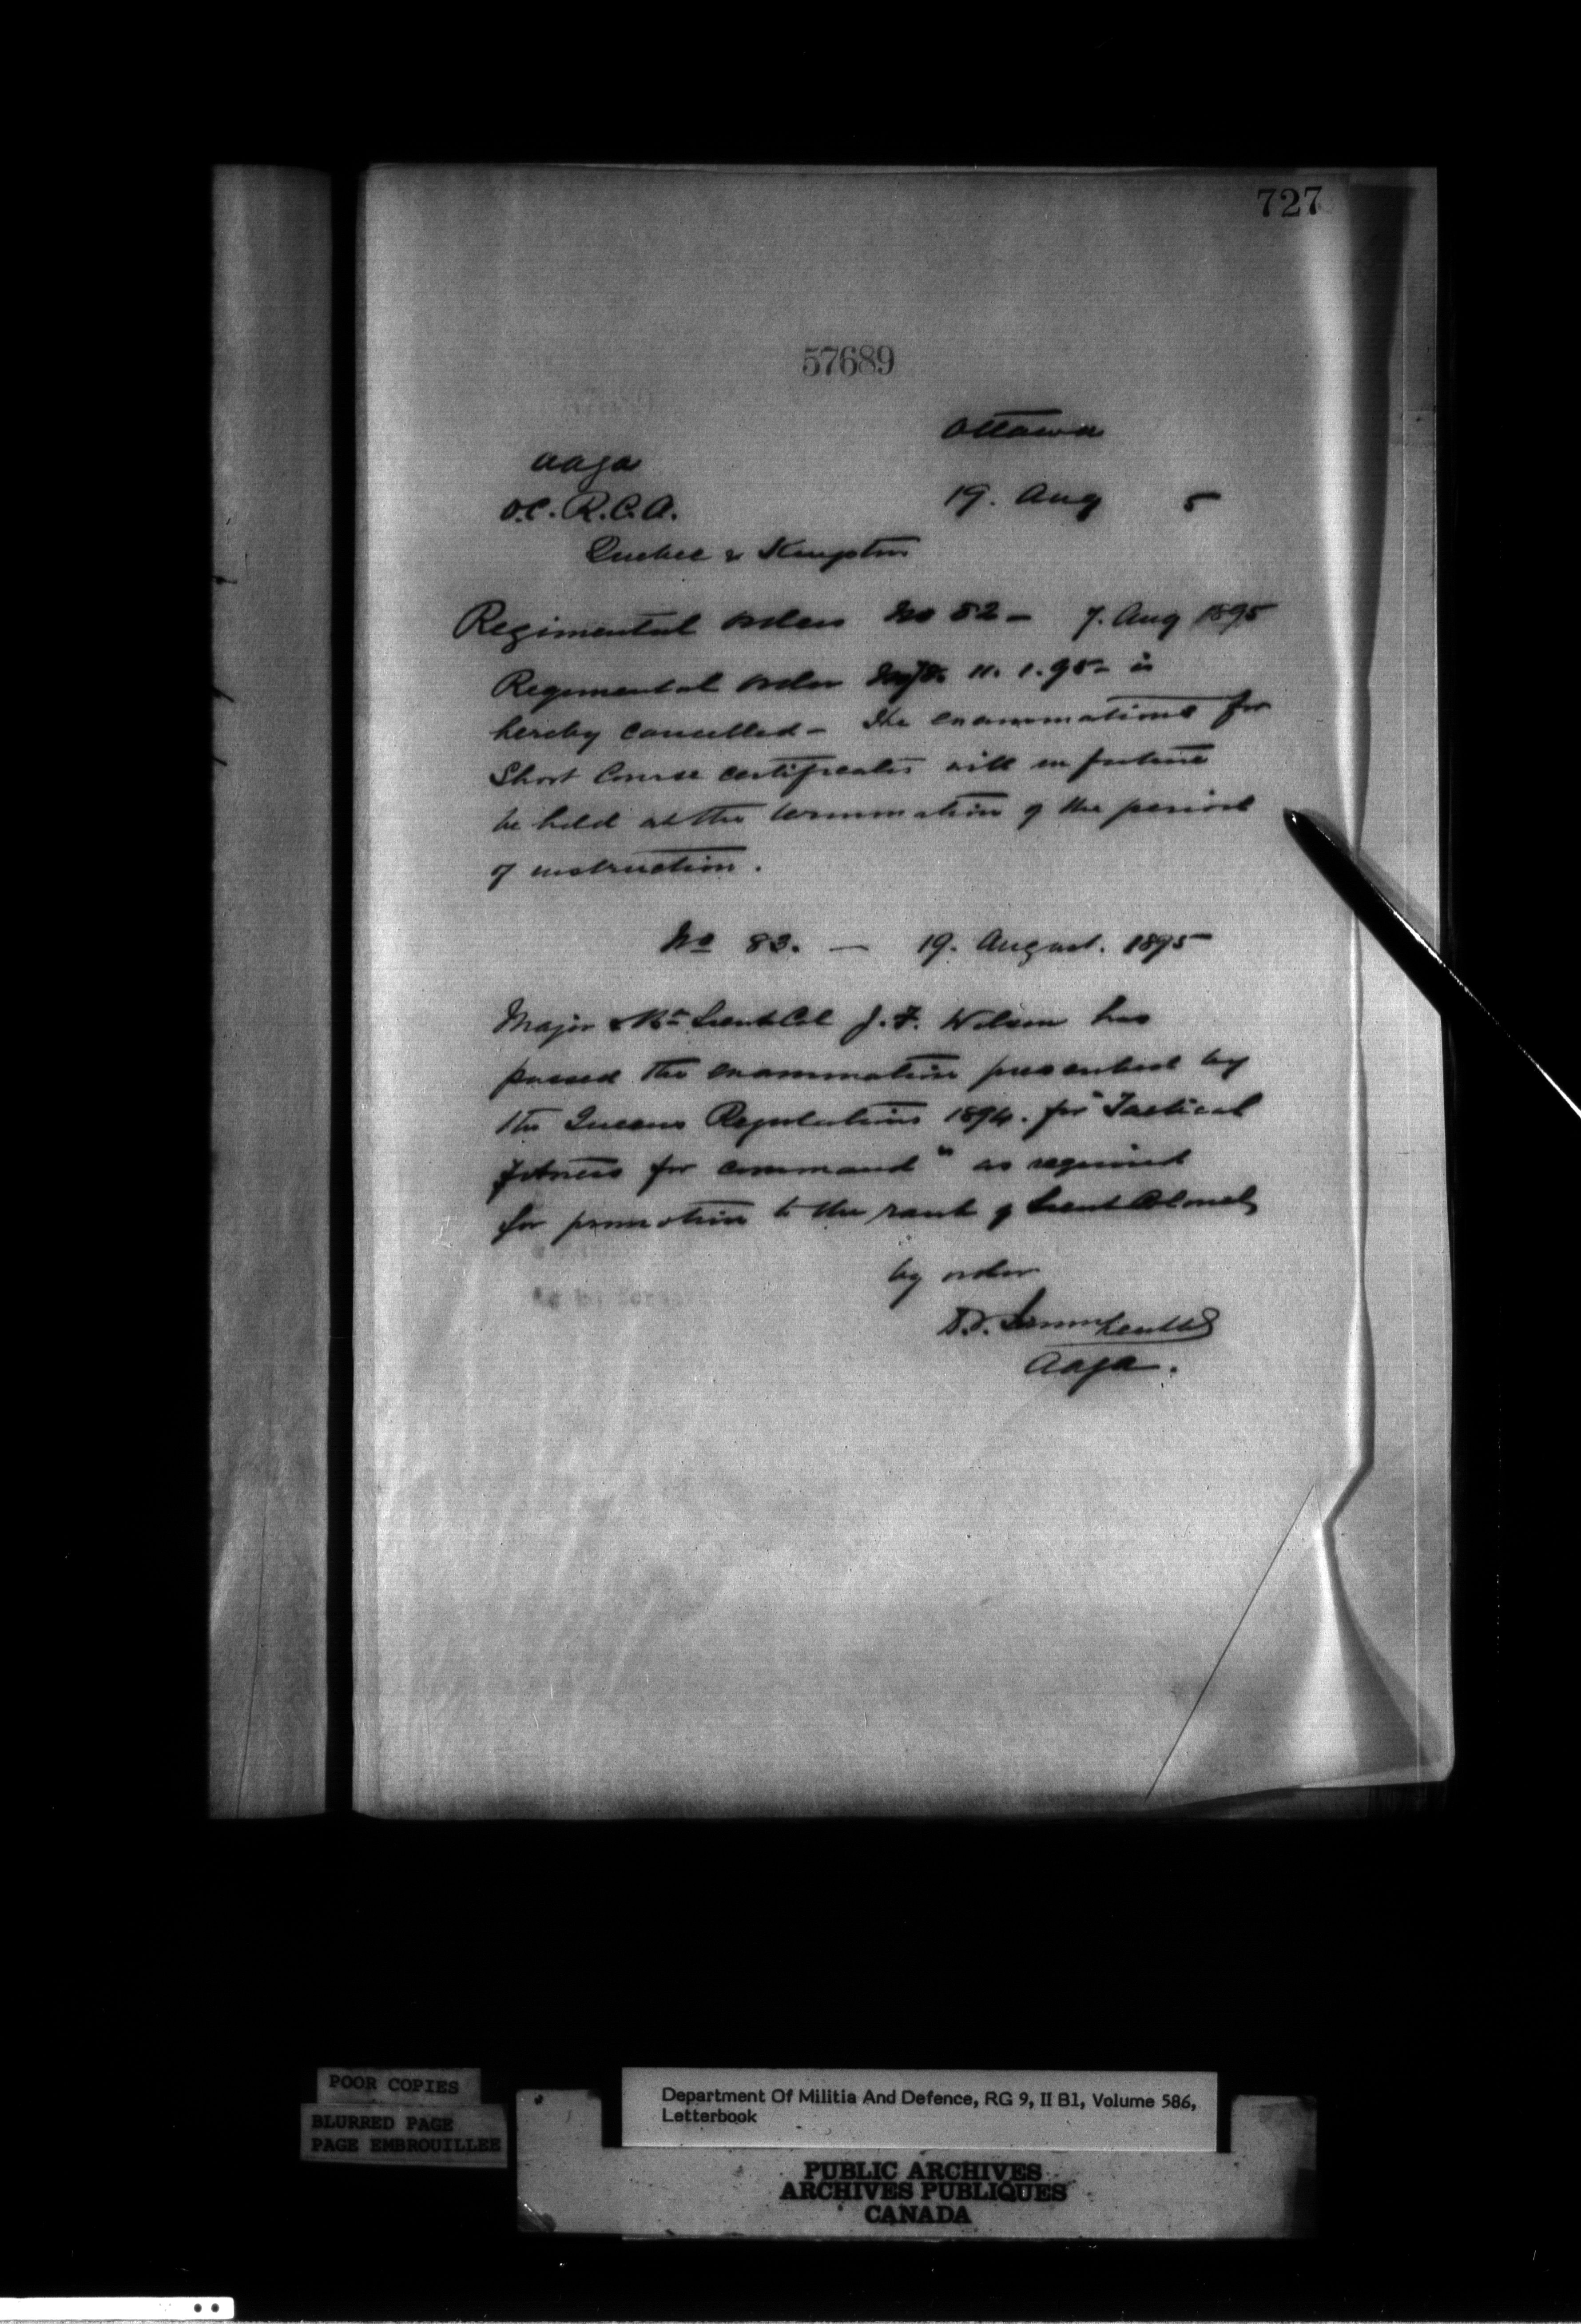 727
57689
Ottawa
aaga
O.C. R.C.A.
19. Aug 5
Quebec & Kingston
Regimental Orders No 82 - 7. Aug 1895
Regimental order 11. 1. 95 - is
hereby cancelled - The examinations for
Short Course certificates will in future
be held at the termination of the period
of instruction.
No 83. — 19. August. 1895
Major & Bt Lieut Col J. F. Wilson has
passed the examination prescribed by
the Queens Regulations 1894. for "Tactical
fitness for command" as required
for promotion to the rank of Lieut Colonel
by order
aaga.
POOR COPIES
BLURRED PAGE
PAGE EMBROUILLEE
Department Of Militia And Defence, RG 9, II B1, Volume 586,
Letterbook
PUBLIC ARCHIVES
ARCHIVES PUBLIQUES
CANADA